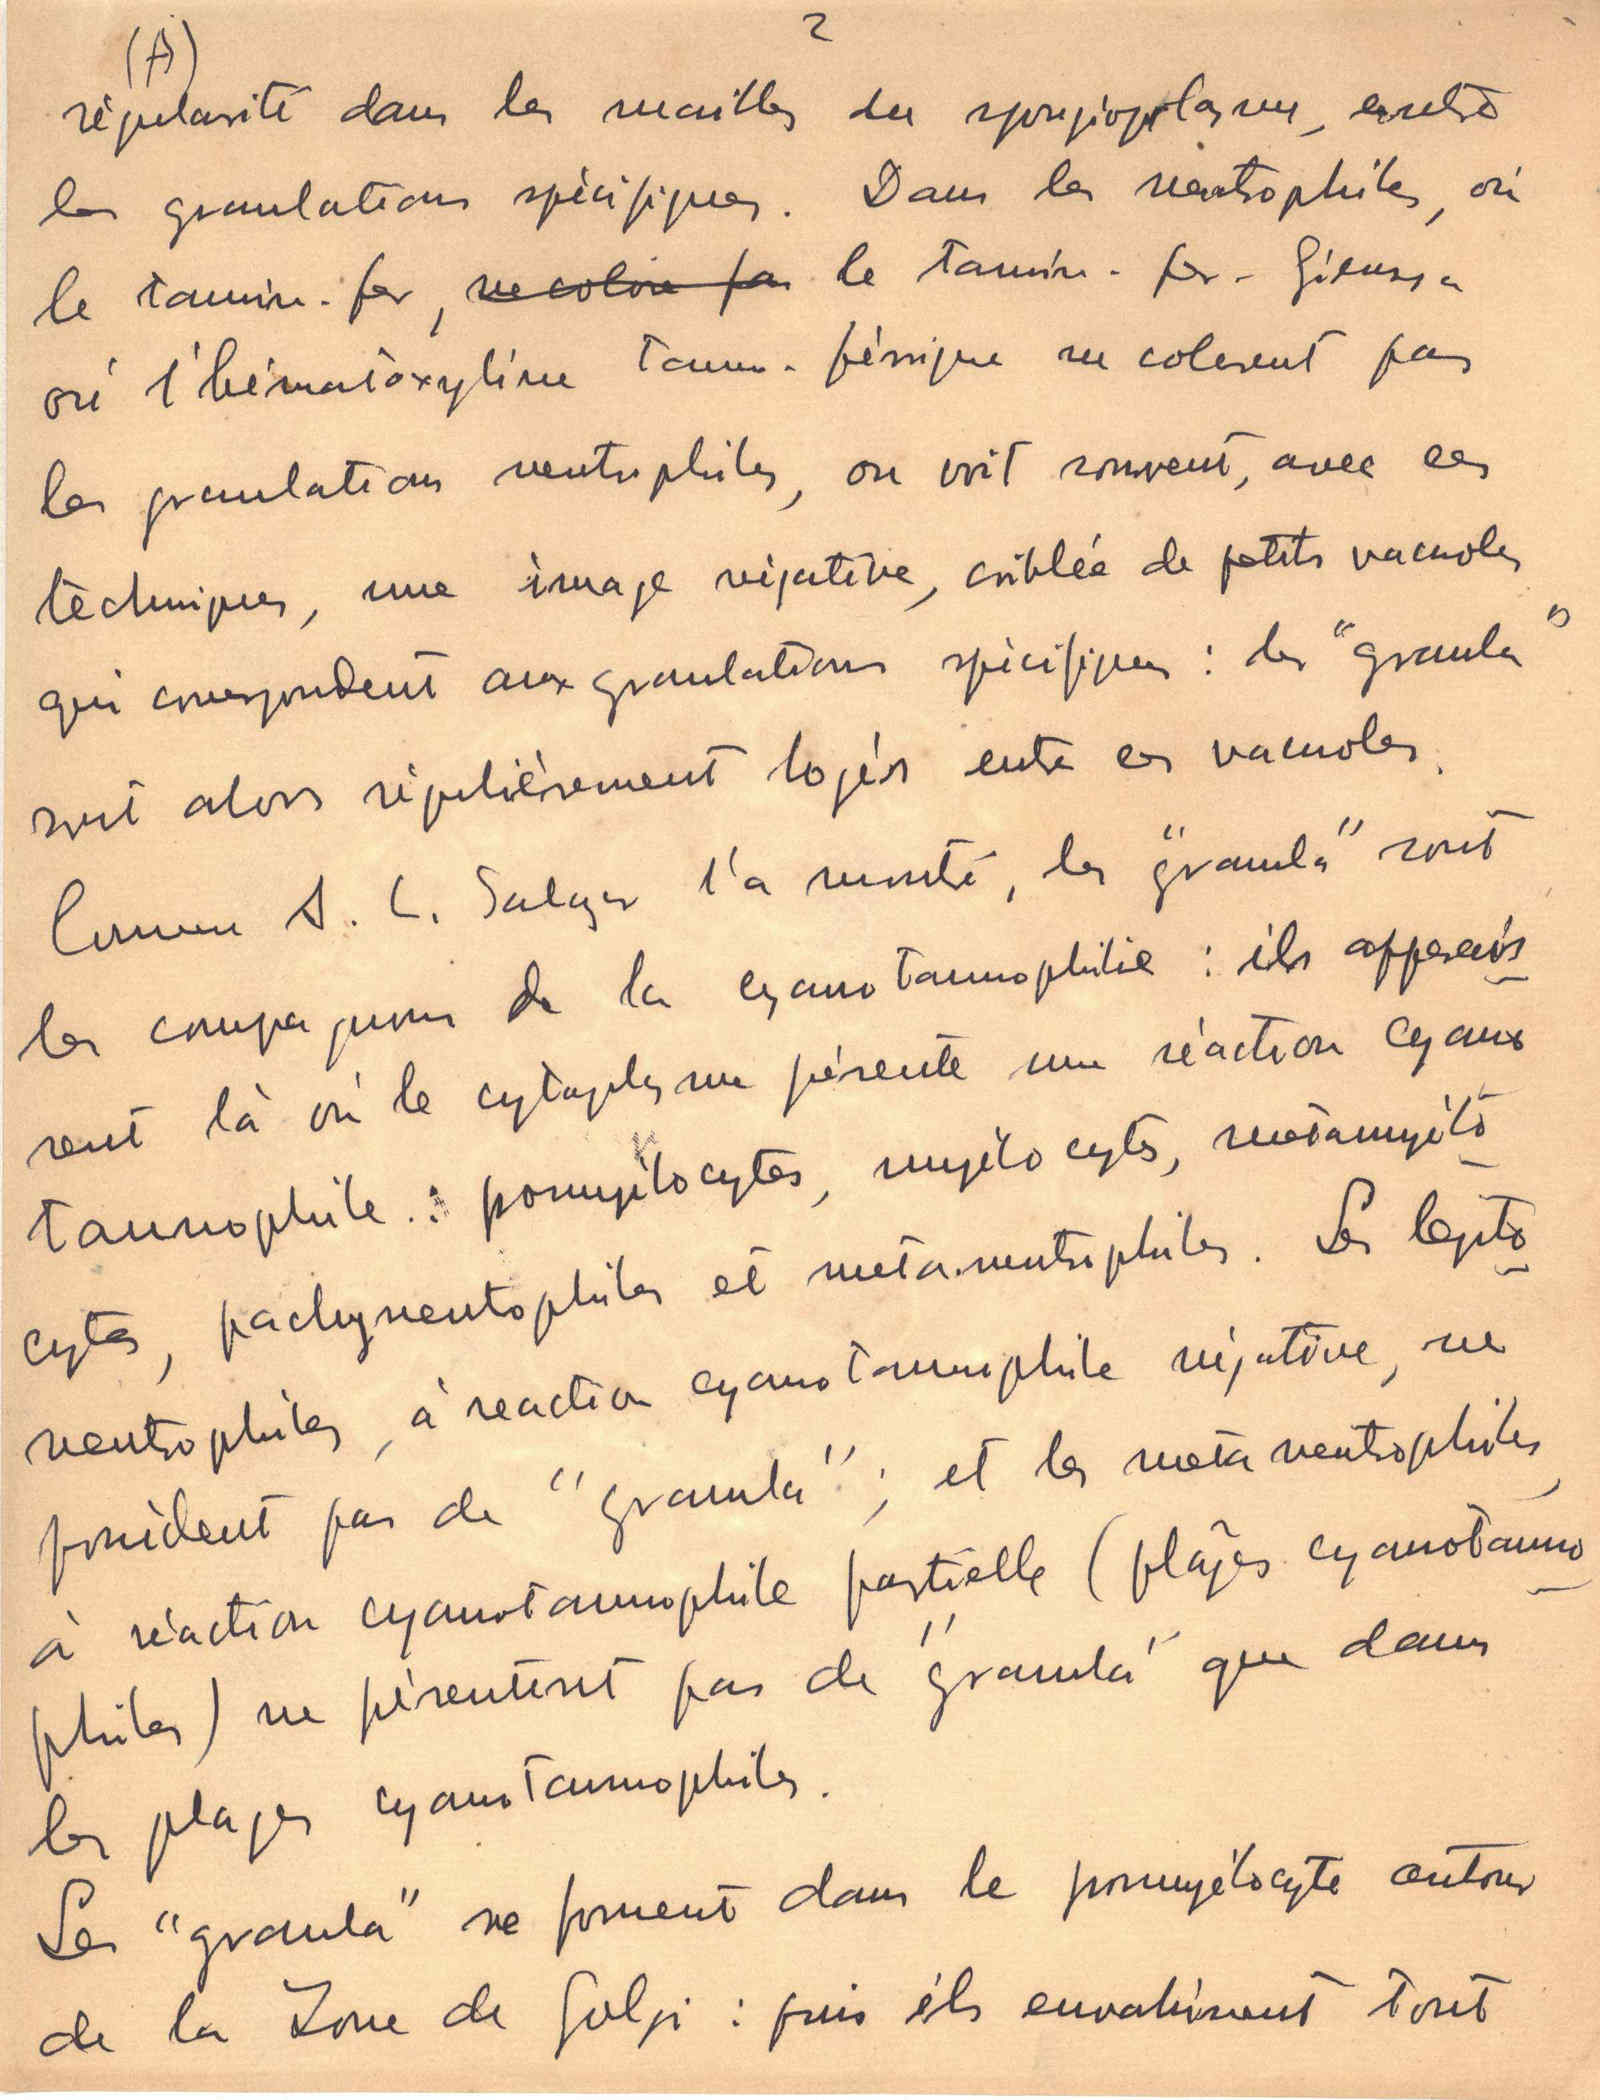 2
(A)
régularité dans les mailles du spongioplasme, entre
les granulations spécifiques. Dans les neutrophiles, où
le tannin-fer, ne colore pas le tannin-fer-Giemsa
où l'hématoxyline tanno-ferrique ne colorent pas
les granulations neutrophiles, on voit souvent, avec ces
techniques, une image négative, criblée de petits vacuoles
qui correspondent aux granulations spécifiques : les "granula"
sont alors régulièrement logés entre ces vacuoles.
Comme A. L. Salazar l'a montré, les "granula" sont
les compagnons de la cyanotannophilie : ils apparais
sent là où le cytoplasme présente une réaction cyano
tannophile : promyélocytes, myélocytes, métamyélo
cytes, pachyneutrophiles et méta-neutrophiles. Les lepto
neutrophiles, à réaction cyanotannophile négative, ne
possèdent pas de "granula" ; et les méta neutrophiles,
à réaction cyanotannophile partielle (plages cyanotanno
philes) ne présentent pas de "granula" que dans
les plages cyanotannophiles.
Les "granula" se forment dans le promyélocyte autour
de la Zone de Golgi : puis ils envahissent tout